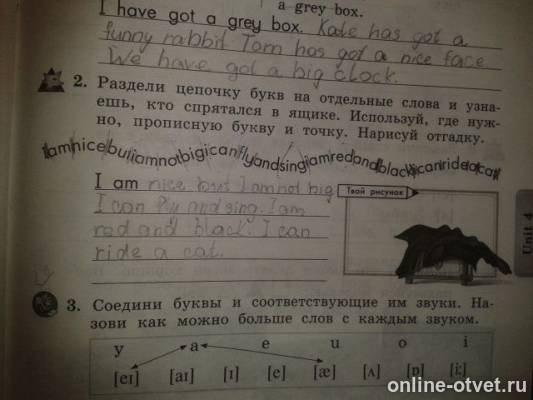 a grey box.
I have got a grey box. Kate has got a
funny rabbit Tom has got a nice face
We have got a big clock.
2. Раздели цепочку букв на отдельные слова и узна-
ешь, кто спрятался в ящике. Используй, где нуж-
но, прописную букву и точку. Нарисуй отгадку.
Iamnicebutiamnotbigicanflyandsingiamredandblackicanrideacat
I am nice but I am not big
I can fly and sing. I am
red and black. I can
ride a cat.
Твой рисунок
Unit 4
3. Соедини буквы и соответствующие им звуки. На-
зови как можно больше слов с каждым звуком.
y a e u o i
[eɪ] [aɪ] [ɪ] [e] [æ] [ʌ] [ɒ] [i:]
online-otvet.ru